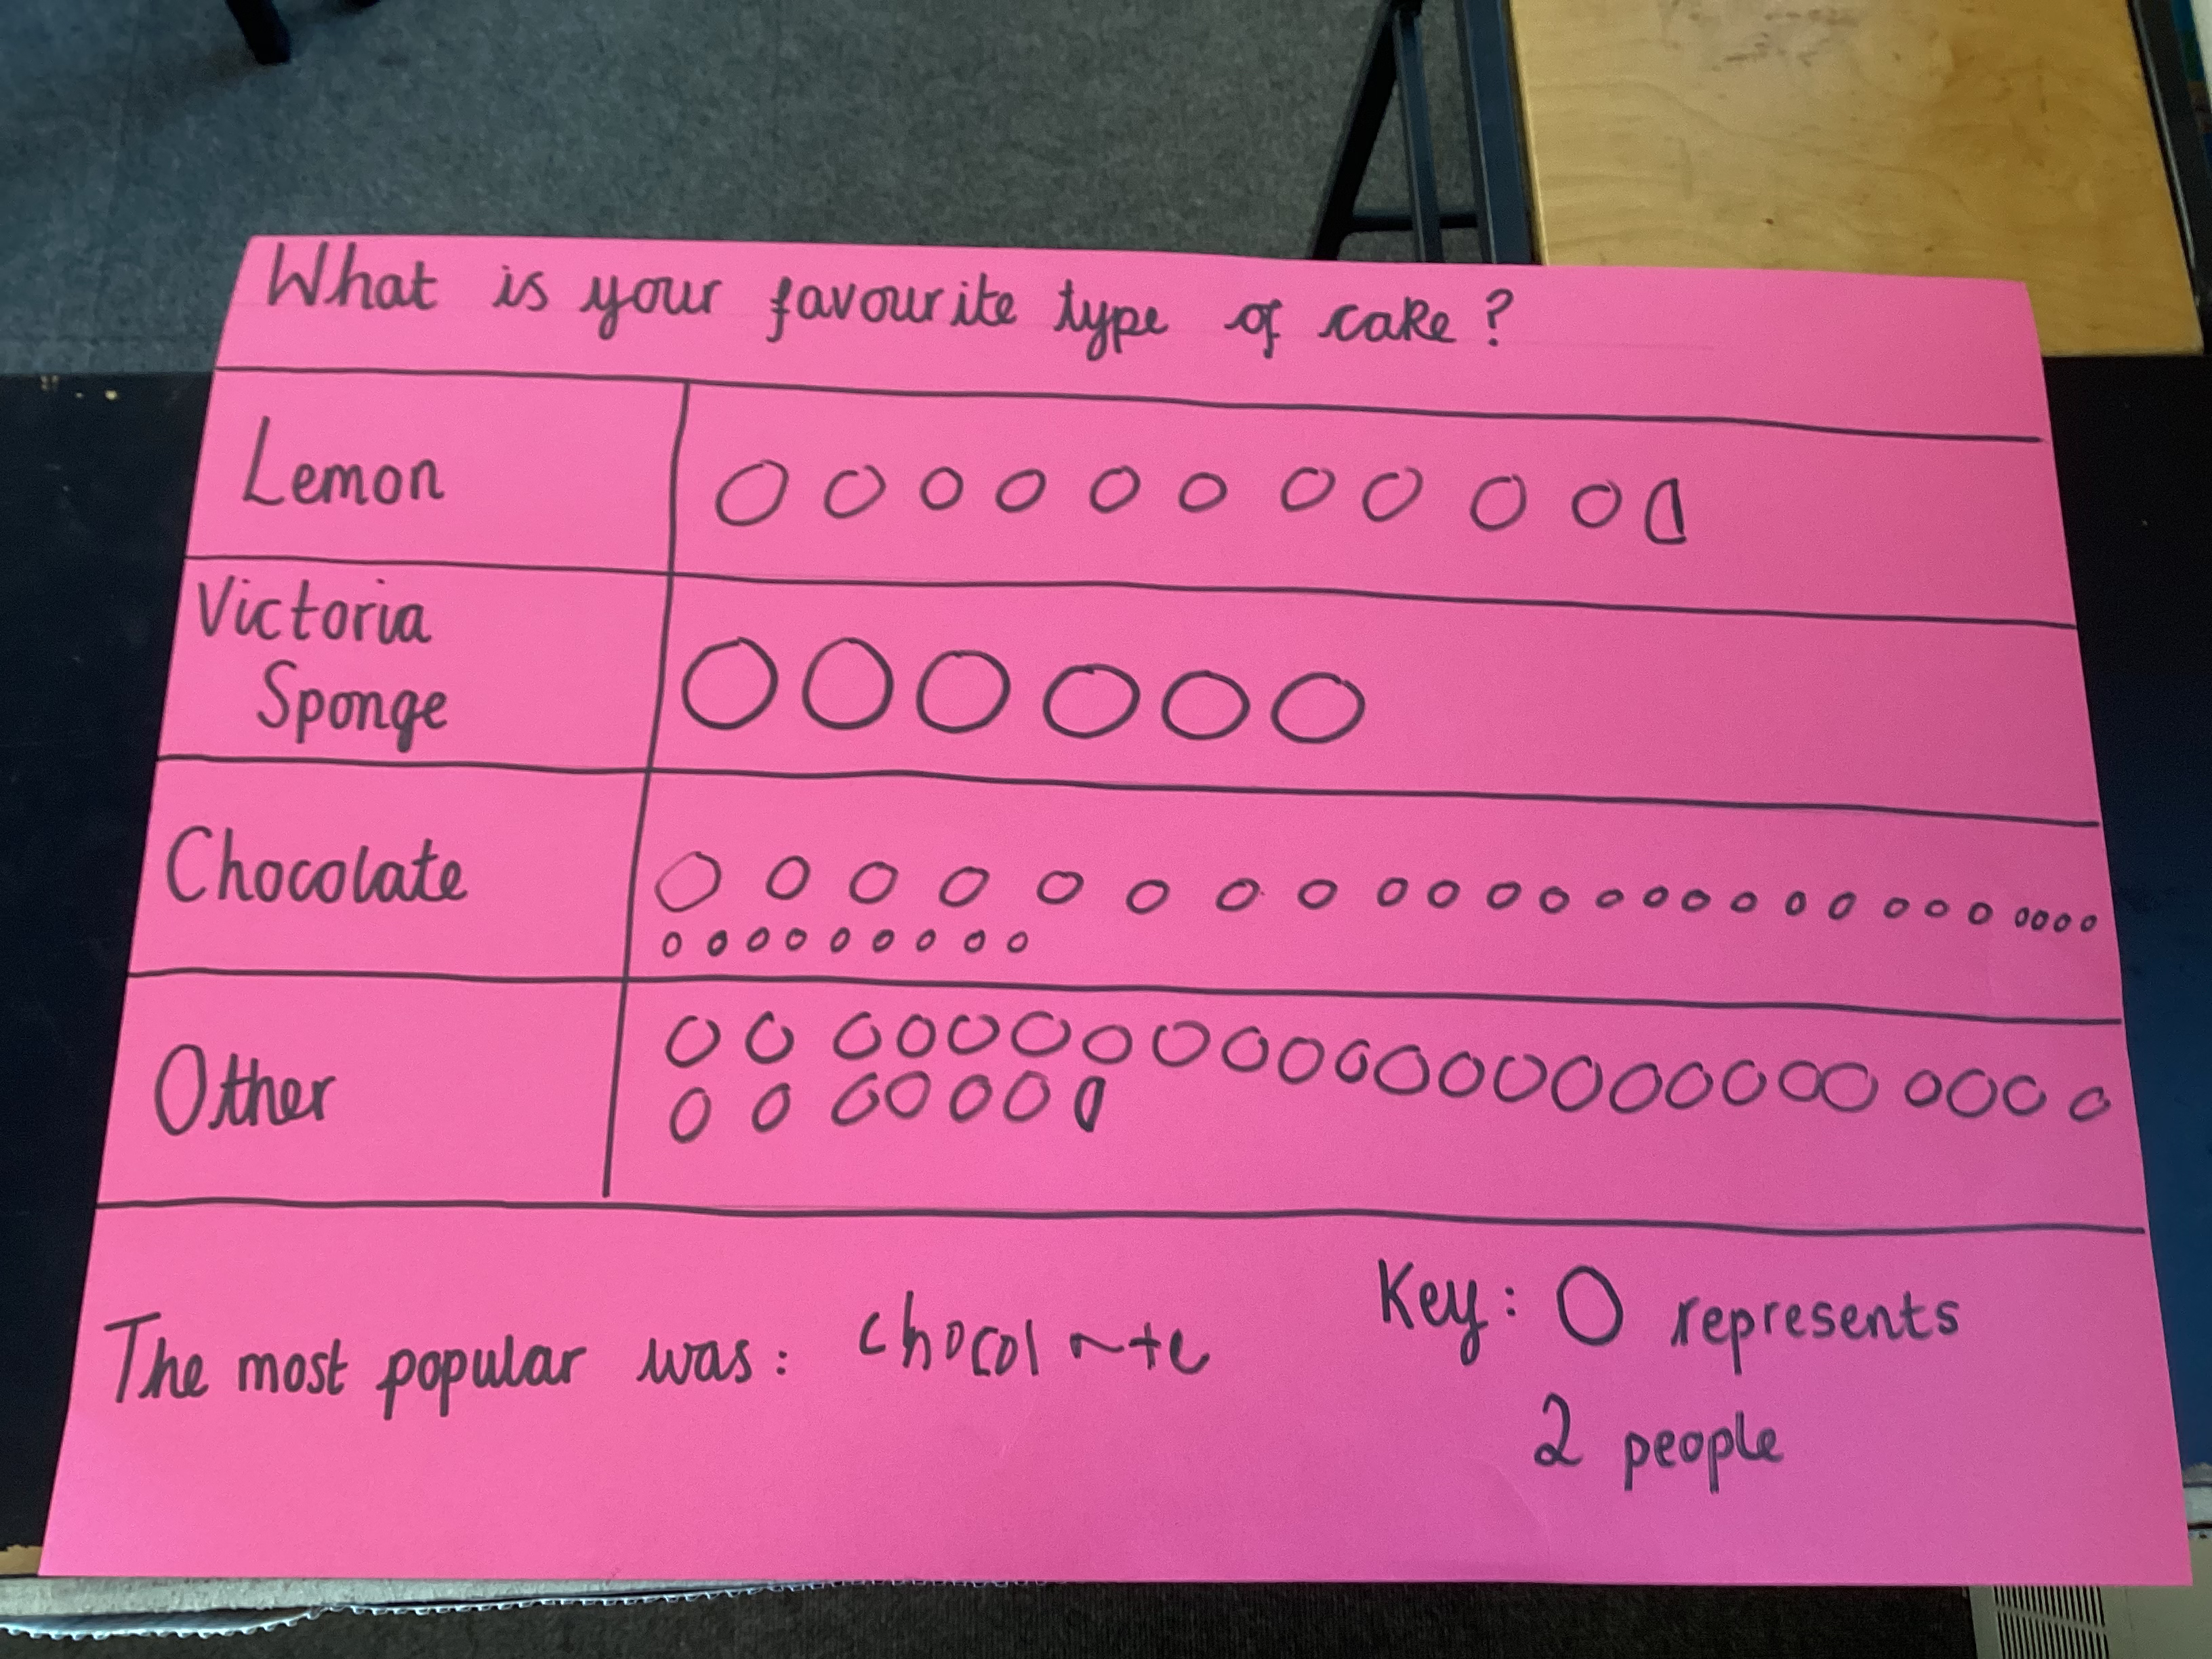 What is your favourite type of cake?
Lemon
Victoria
Sponge
Chocolate
Other
The most popular was: chocolate
Key: O represents
2 people